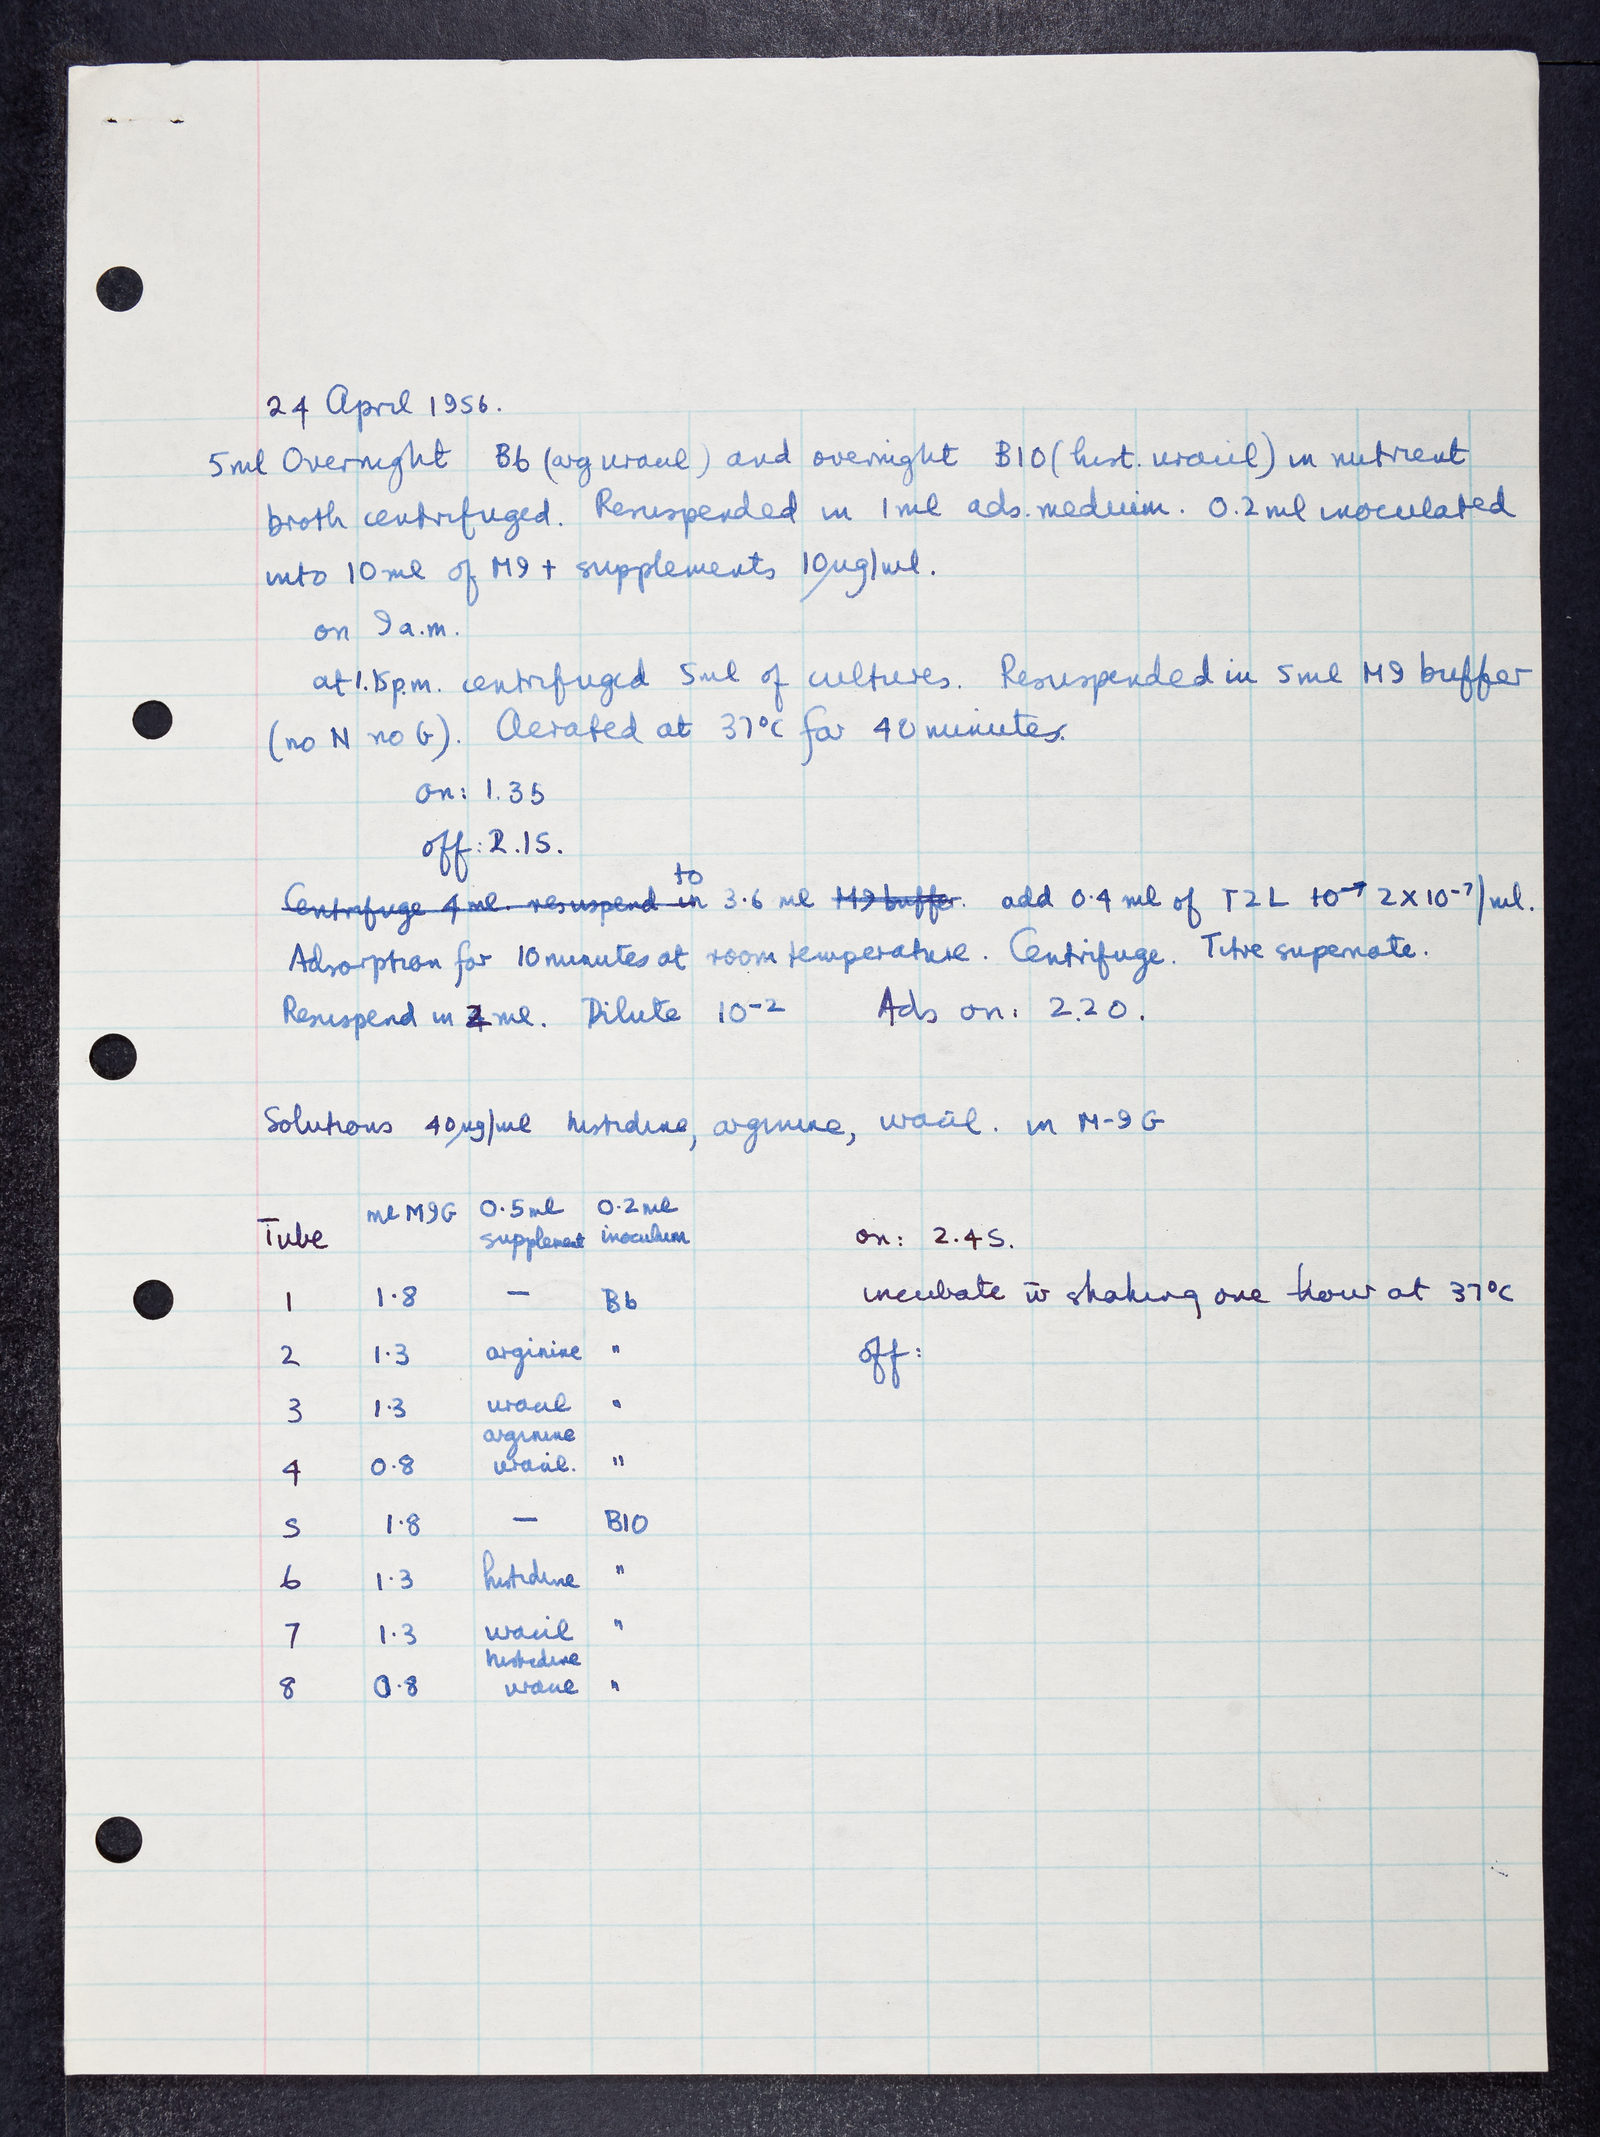 24 April 1956.
5ml Overnight B6 (arg uracil) and overnight B10 (hist. uracil) in nutrient
broth centrifuged. Resuspended in 1ml ads. medium. 0.2ml inoculated
into 10ml of M9 + supplements 10µg/ml.
on 9a.m.
at 1.15p.m. centrifuged 5ml of cultures. Resuspended in 5ml M9 buffer
(no N no G). Aerated at 37°C for 40 minutes.
on: 1.35
off: 2.15.
to
Centrifuge 4ml. resuspend in 3.6 ml M9 buffer. add 0.4 ml of T2L 10⁻⁷ 2x10⁻⁷/ml.
Adsorption for 10 minutes at room temperature. Centrifuge. Titre supernate.
Resuspend in ml. Dilute 10⁻² Ads on: 2.20.
Solutions 40µg/ml histidine, arginine, uracil. in M-9G
Tube ml M9G 0.5ml supplement 0.2ml inoculum
on: 2.45.
1 1.8 — B6
incubate w̄ shaking one hour at 37°C
2 1.3 arginine "
off:
3 1.3 uracil "
arginine
4 0.8 uracil. "
5 1.8 — B10
6 1.3 histidine "
7 1.3 uracil "
histidine
8 0.8 uracil "